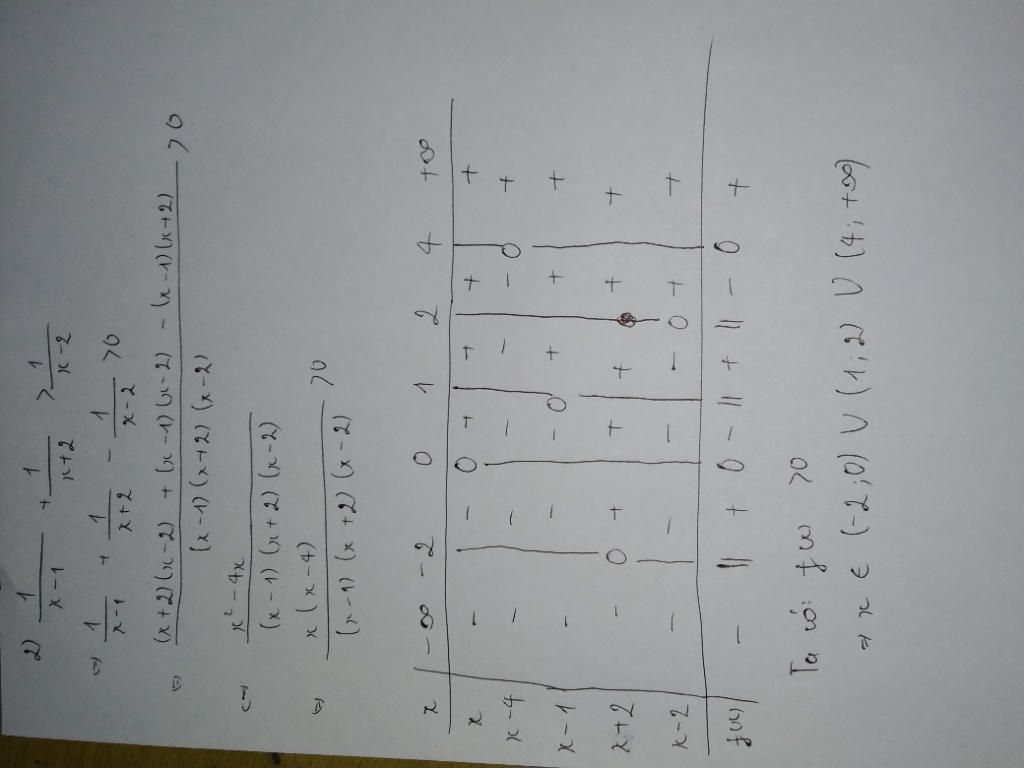 2) 1/(x-1) + 1/(x+2) > 1/(x-2)
⇔ 1/(x-1) + 1/(x+2) - 1/(x-2) > 0
⇔ ((x+2)(x-2) + (x-1)(x-2) - (x-1)(x+2))/((x-1)(x+2)(x-2)) > 0
⇔ (x² - 4x)/((x-1)(x+2)(x-2))
⇔ x(x-4)/((x-1)(x+2)(x-2)) > 0
x | -∞ -2 0 1 2 4 +∞
x - - 0 + + + +
x-4 - - - - - 0 +
x-1 - - - 0 + + +
x+2 - 0 + + + + +
x-2 - - - - 0 + +
f(x) - || + 0 - || + || - 0 +
Ta có: f(x) > 0
⇒ x ∈ (-2;0) ∪ (1;2) ∪ (4;+∞)